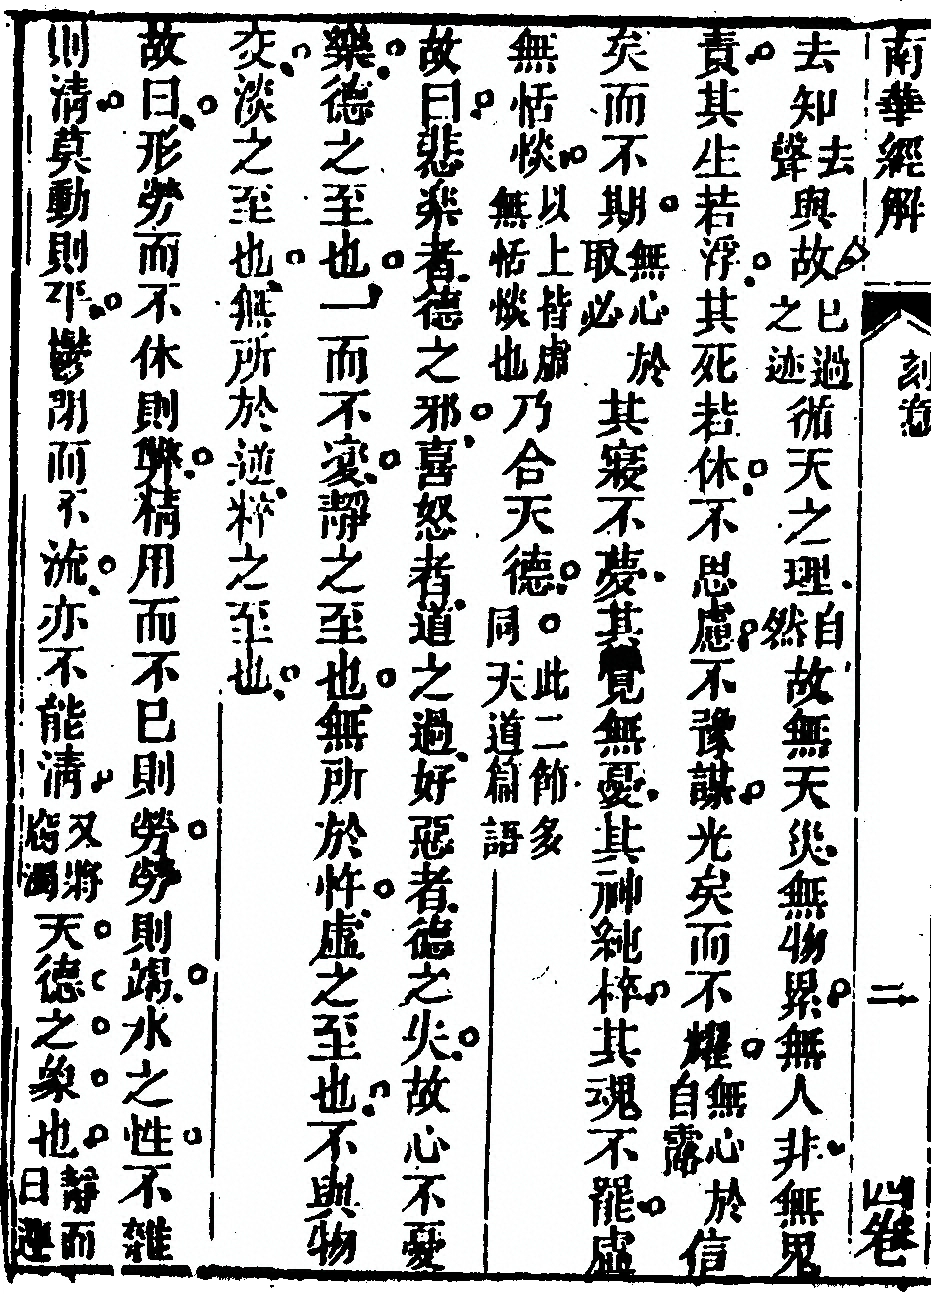 南華經解 刻意 二 卷
去知去聲與故已過之迹循天之理自然故無天災無物累無人非無鬼
責其生若浮其死若休不思慮不豫謀光矣而不耀無心於自露信
矣而不期無心於取必其寢不夢其覺無憂其神純粹其魂不罷虛
無恬惔以上皆虛無恬惔也乃合天德此二節多同天道篇語
故曰悲楽者德之邪喜怒者道之過好惡者德之失故心不憂
樂德之至也一而不變靜之至也無所於忤虛之至也不與物
交淡之至也無所於逆粹之至也
故曰形勞而不休則弊精用而不已則勞勞則竭水之性不雜
則清莫動則平鬱閉而不流亦不能清又將腐濁天德之象也靜而日運